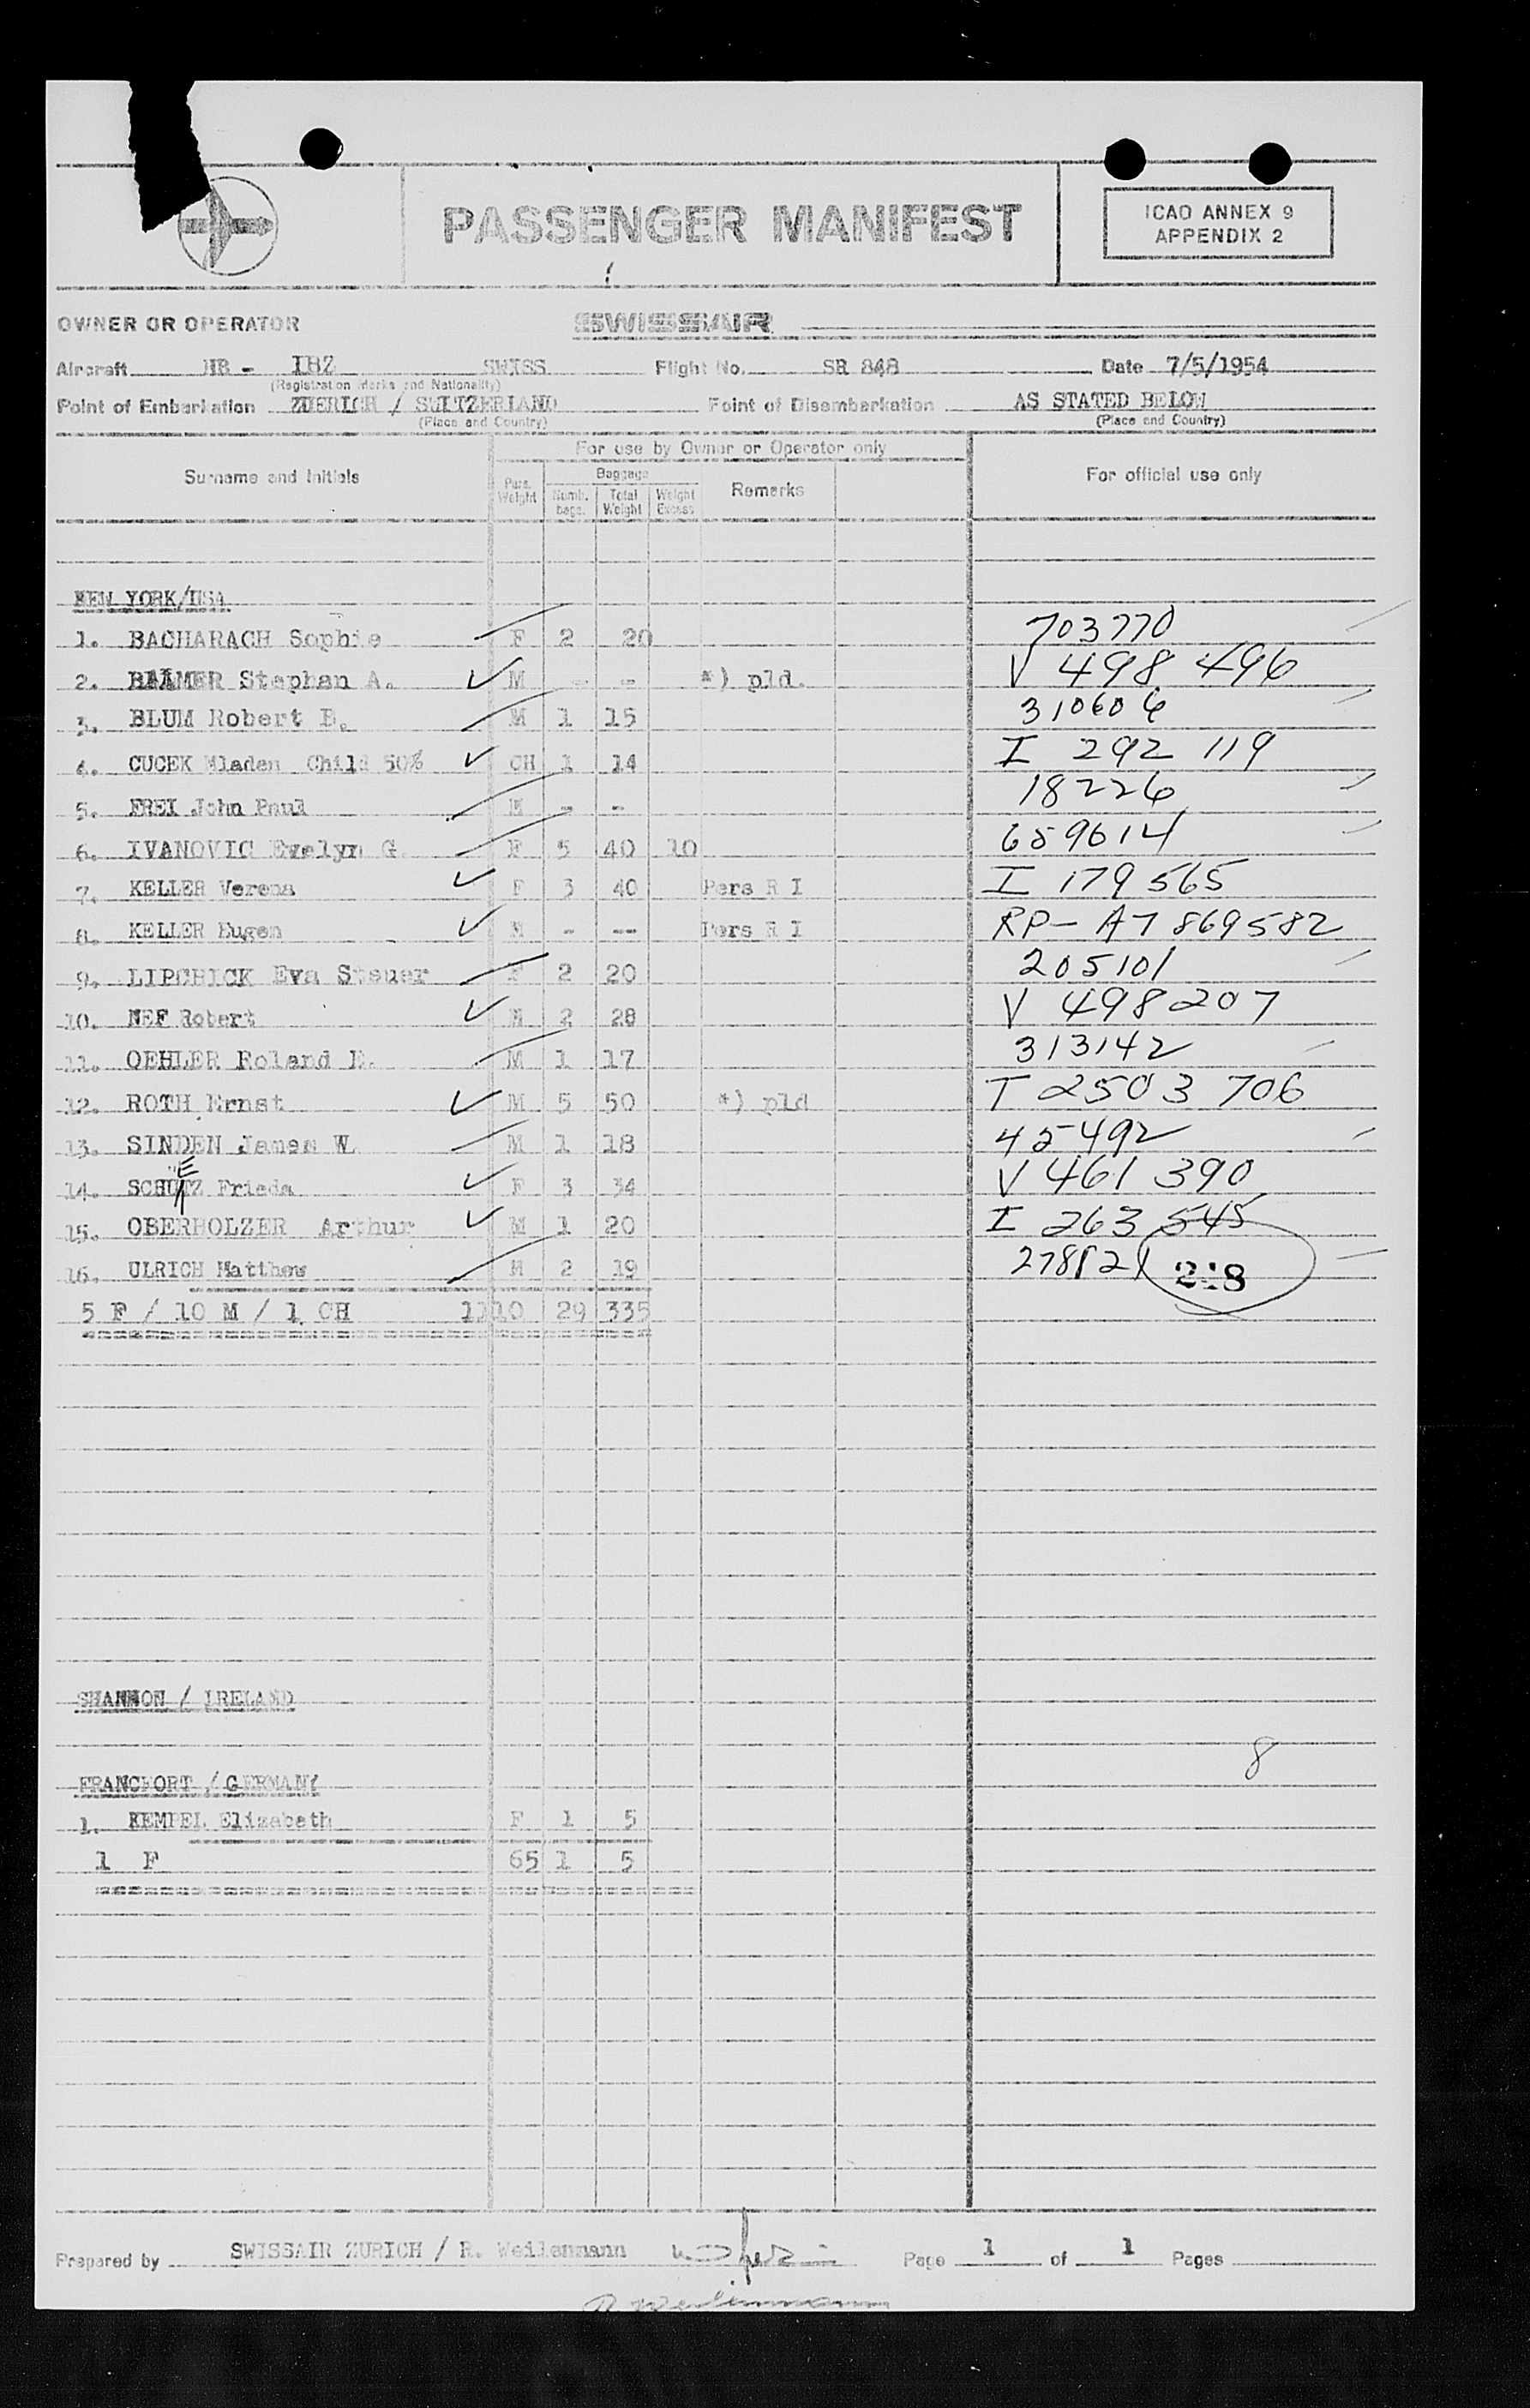 PASSENGER MANIFEST
ICAO ANNEX 9
APPENDIX 2
OWNER OR OPERATOR SWISSAIR
Aircraft HB - IBZ SWISS Flight No. SR 848 Date 7/5/1954
(Registration Marks and Nationality)
Point of Embarkation ZUERICH / SWITZERLAND Point of Disembarkation AS STATED BELOW
(Place and Country) (Place and Country)
For use by Owner or Operator only
Surname and Initials Pass. Weight Baggage Numb. bags. Total Weight Weight Excess Remarks For official use only
NEW YORK/USA
1. BACHARACH Sophie F 2 20 703770
2. Stephan A. M - - *) pld. V 498 496
3. BLUM Robert B. M 1 15 310606
4. CUCEK Mladen Child 50% CH 1 14 I 292 119
5. FREI John Paul M - - 18226
6. IVANOVIC Evelyn G F 5 40 10 659614
7. KELLER Verena F 3 40 Pers R I I 179565
8. KELLER Eugen M - -- Pers R I RP- A7 869582
9. LIPCHICK Eva Steuer F 2 20 205101
10. NEF Robert M 2 28 V 498207
11. OEHLER Roland E. M 1 17 313142
12. ROTH Ernst M 5 50 *) pld T 2503 706
13. SINDEN James W. M 1 18 45492
E
14. SCHUTZ Frieda F 3 34 V 461 390
15. OBERHOLZER Arthur M 1 20 I 263 545
16. ULRICH Matthew M 2 19 278821 218
5 F / 10 M / 1 CH 1110 29 335
SHANNON / IRELAND
8
FRANCFORT / GERMANY
1. KEMPEL Elizabeth F 1 5
1 F 65 1 5
Prepared by SWISSAIR ZURICH / R. Weilenmann Page 1 of 1 Pages
R Weilenmann